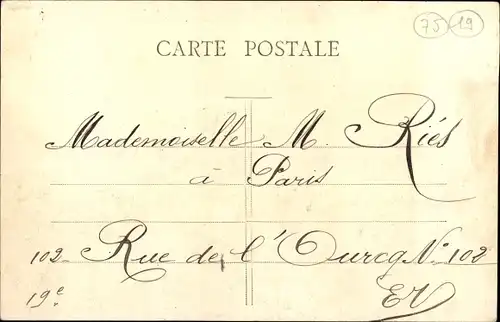 75 19
CARTE POSTALE
Mademoiselle M. Riés
à Paris
102 Rue de l'Ourcq No 102
19e EV